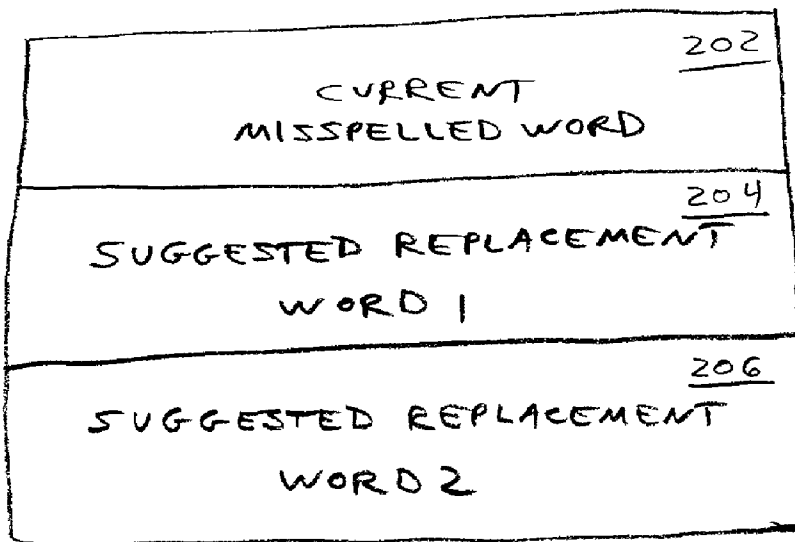 202
CURRENT
MISSPELLED WORD
204
SUGGESTED REPLACEMENT
WORD 1
206
SUGGESTED REPLACEMENT
WORD 2